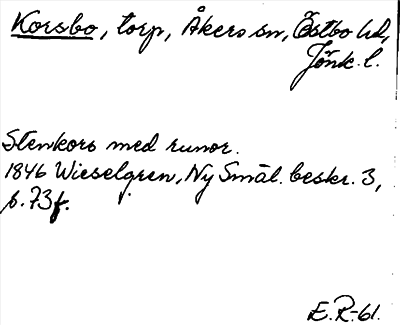 Korsbo, torp, Åkers sn, Östbo hd,
Jönk. l.
Stenkors med runor.
1846 Wieselgren, Ny Smål. beskr. 3,
s. 73 f.
E.R-61.